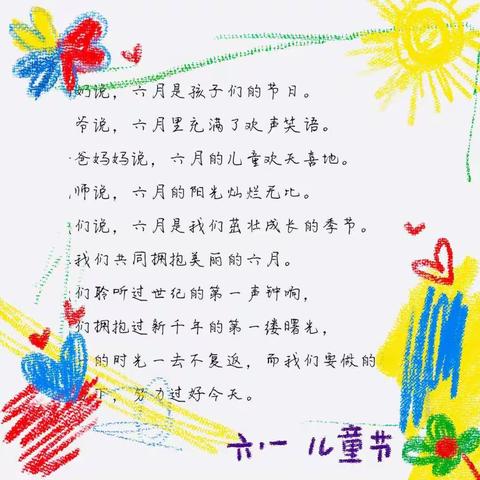 妈说，六月是孩子们的节日。
爷说，六月里充满了欢声笑语。
爸妈妈说，六月的儿童欢天喜地。
师说，六月的阳光灿烂无比。
们说，六月是我们茁壮成长的季节。
我们共同拥抱美丽的六月。
们聆听过世纪的第一声钟响，
们拥抱过新千年的第一缕曙光，
的时光一去不复返，而我们要做的
下，努力过好今天。
六·一儿童节